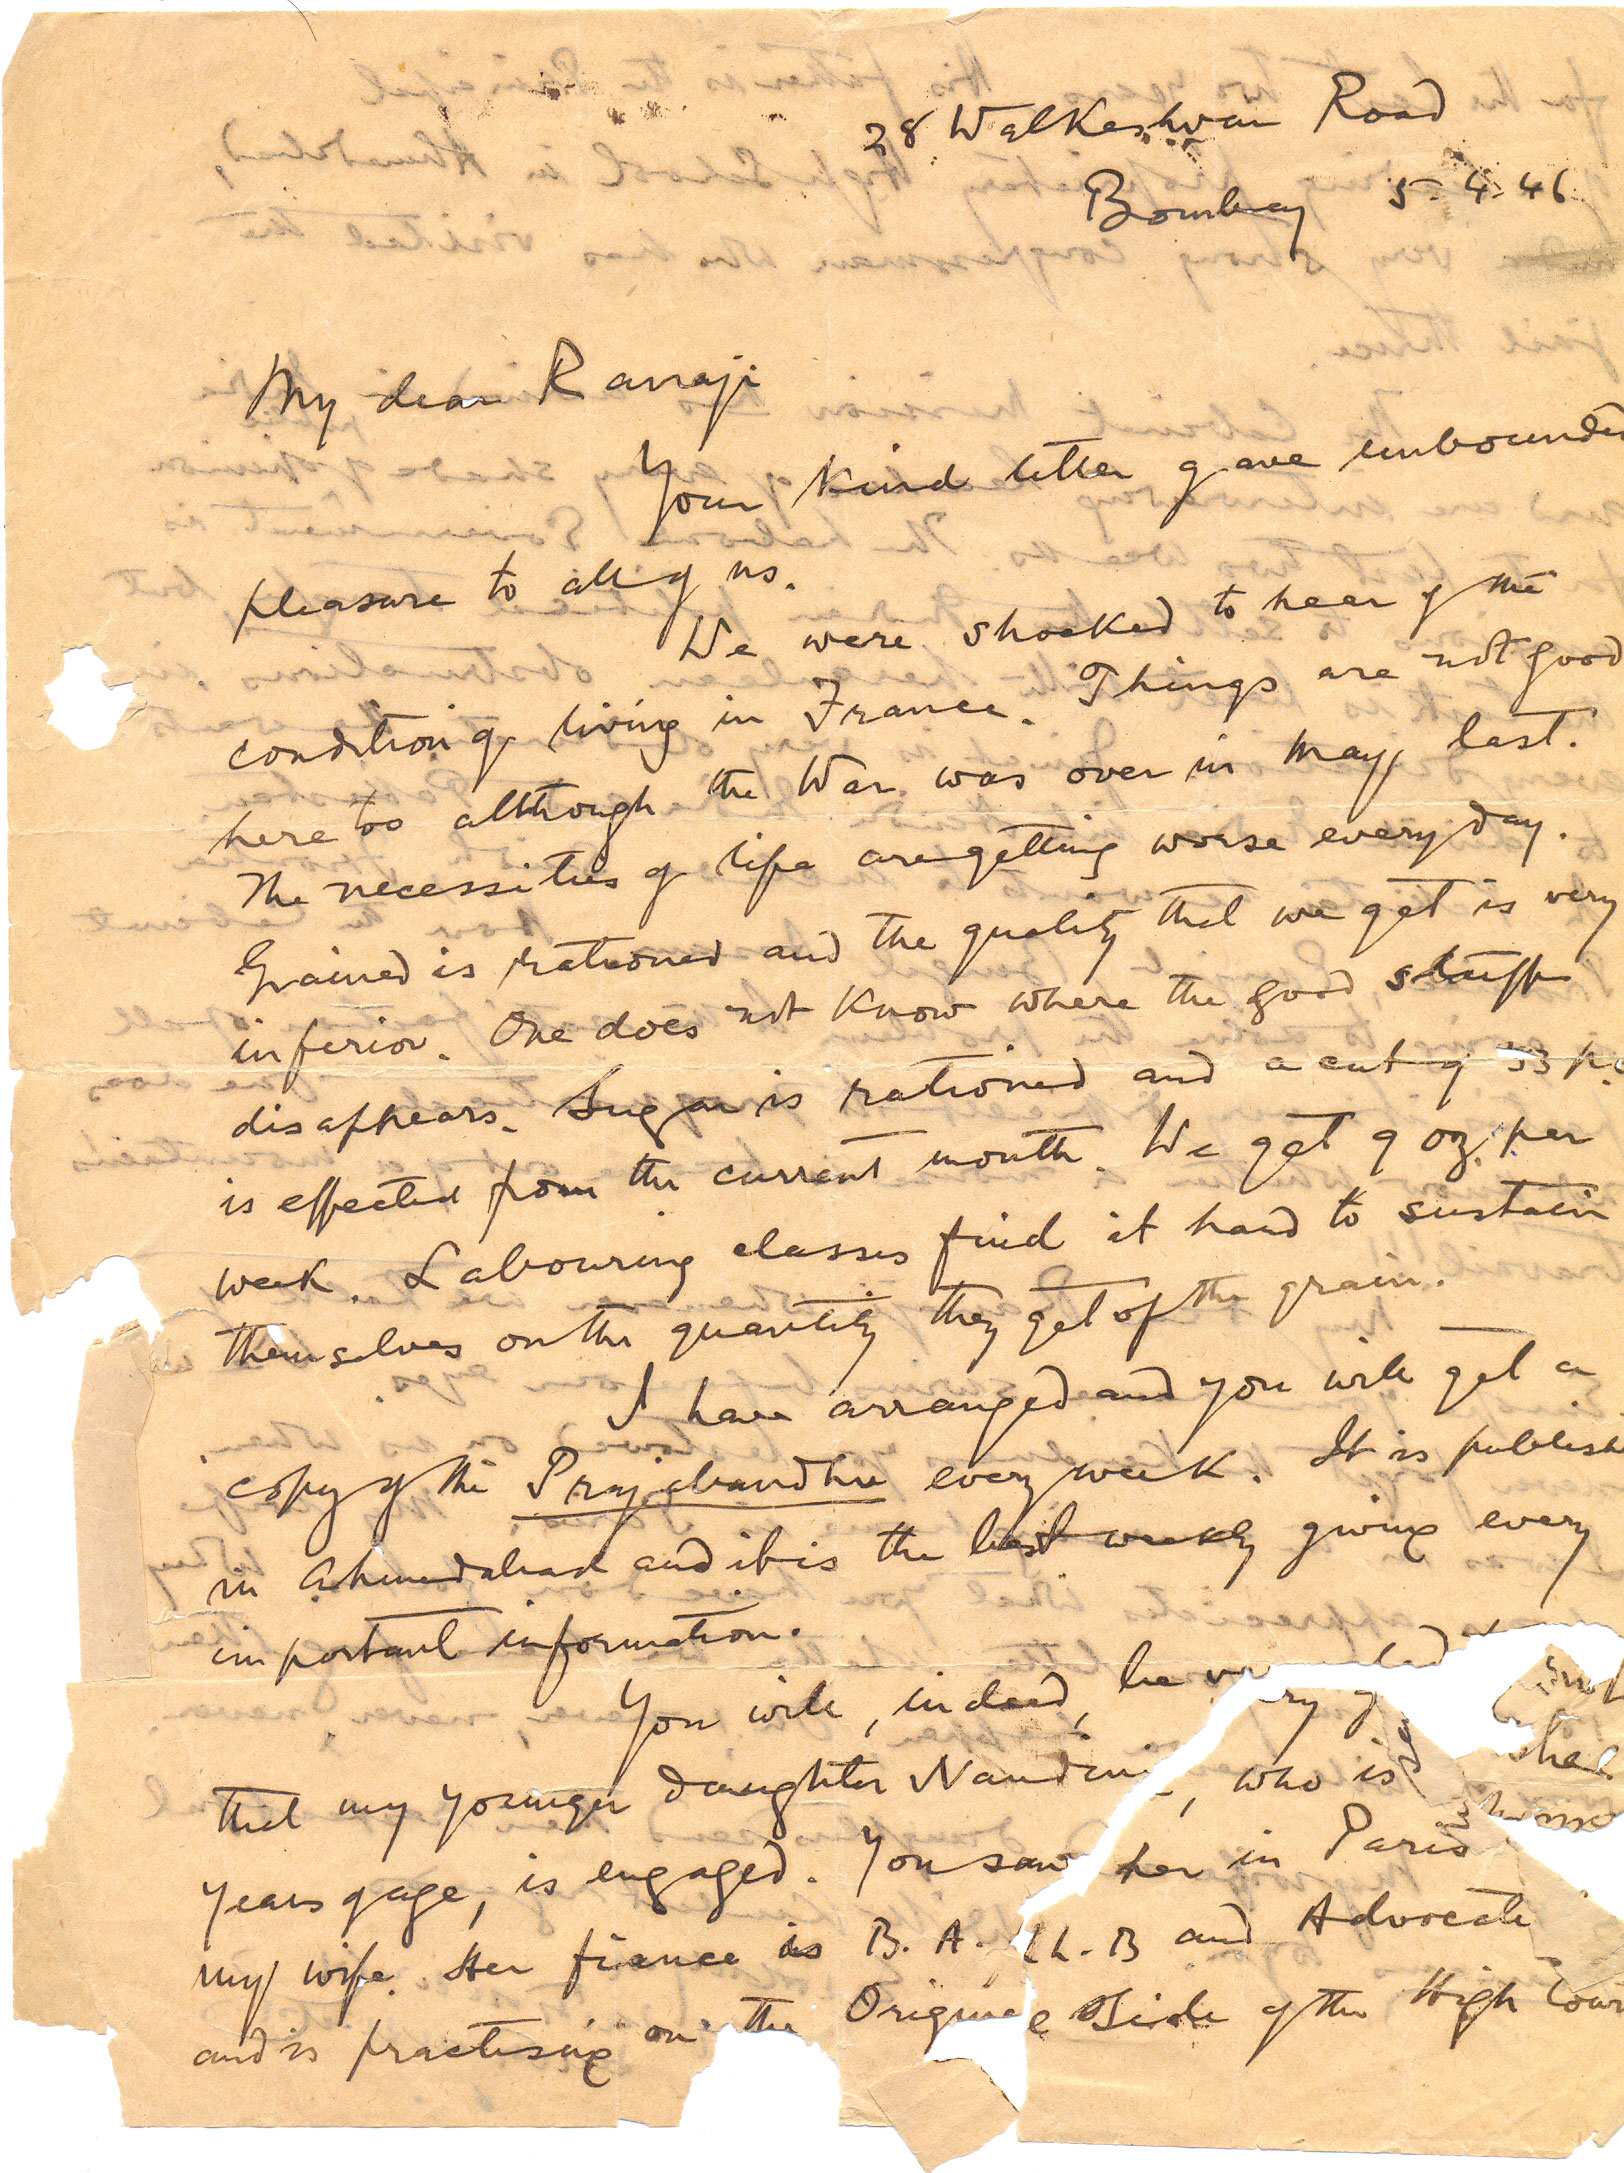 28 Walkeshwar Road
Bombay 5-4-46
My dear Ranaji
Your kind letter gave unbounded
pleasure to all of us.
We were shocked to hear of the
condition of living in France. Things are not good
here too although the War was over in May last.
The necessities of life are getting worse every day.
Grained is rationed and the quality that we get is very
inferior. One does not know where the good stuff
disappears. Sugar is rationed and a cut of 33 p.c
is effected from the current month. We get 9 oz. per
week. Labouring classes find it hard to sustain
themselves on the quantity they get of the grain.
I have arranged and you will get a
copy of the Prajabandhu every week. It is publish
in Ahmedabad and it is the best weekly giving every
important information.
You will, indeed, be very
that my younger daughter Nandini, who is
years of age, is engaged. You saw her in Paris
my wife. Her fiance is B. A. LL. B and Advocate
and is practising on the Original Side of the High Cour